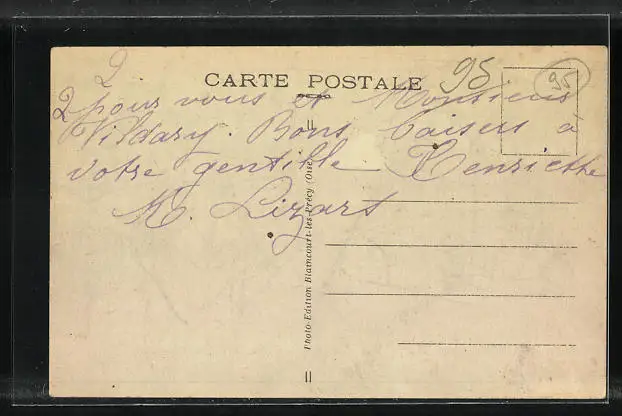 2
CARTE POSTALE
95
95
2 pour vous et Monsieur
Vildary. Bons baisers à
votre gentille Henriette
M. Lizart
Photo-Edition Blaincourt-les-Précy (Oise)